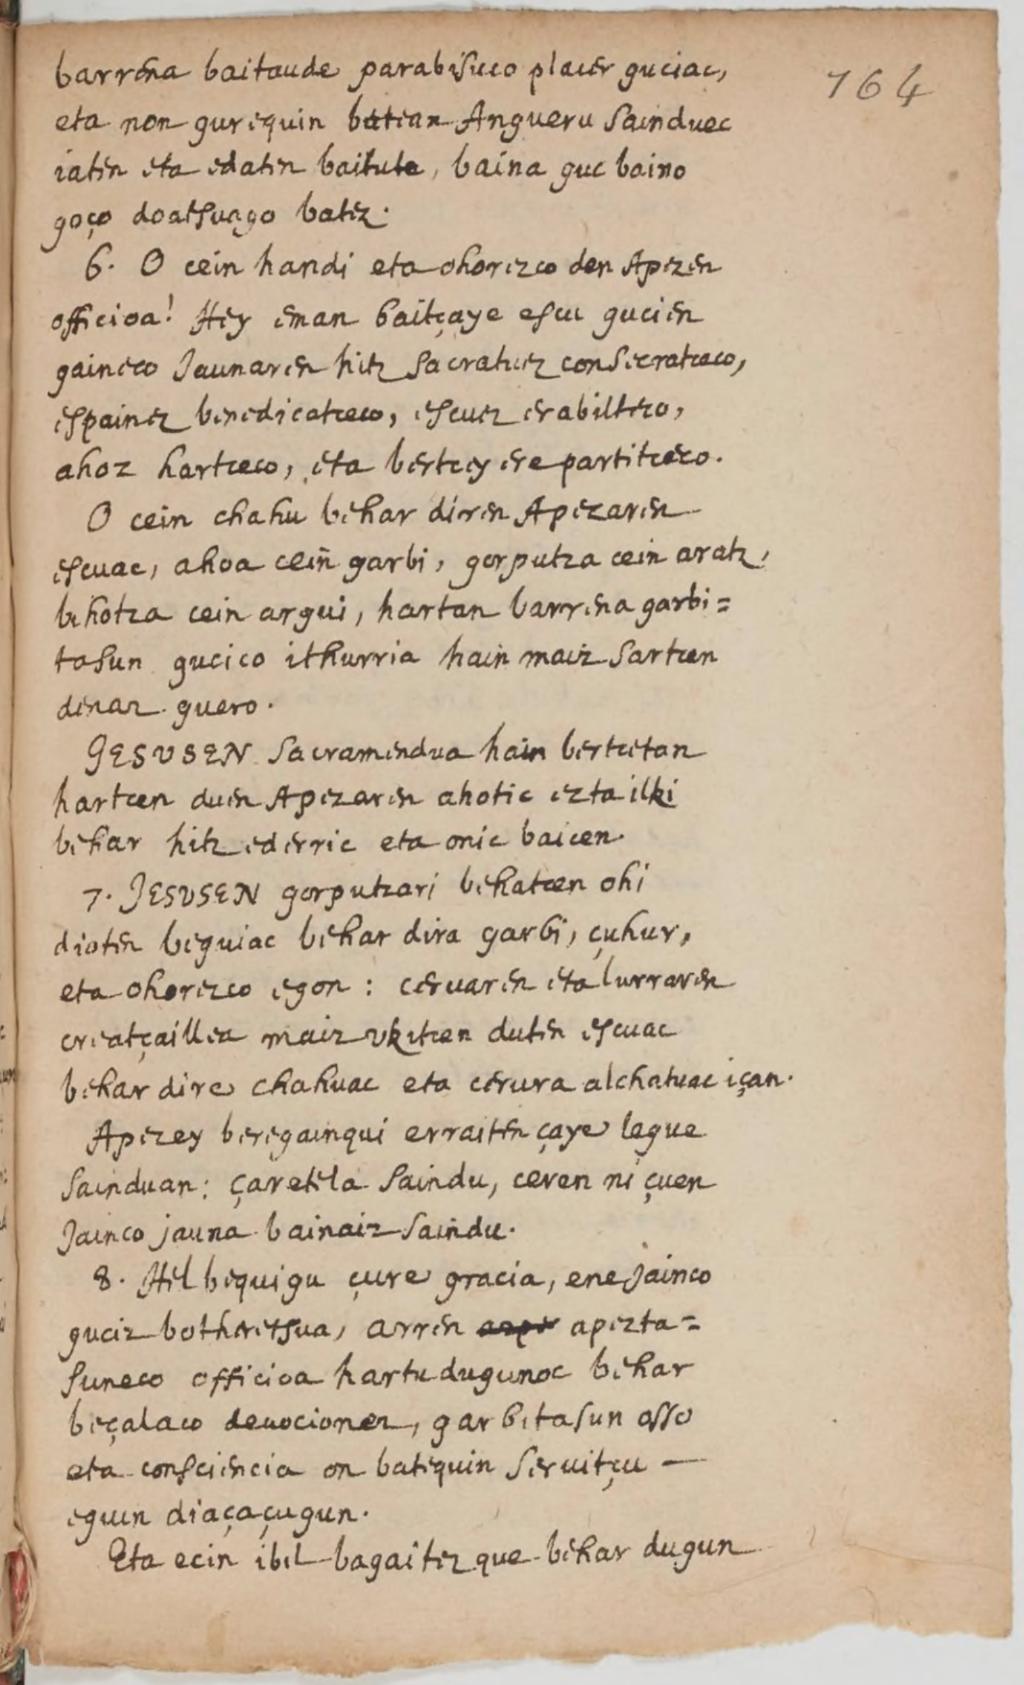 164
barrena baitaude parabisuco placer guciac,
eta non gurequin batean Angueru Sainduec
iaten eta edaten baitute, baina guc baino
goço doatsuago batez.
6. O cein handi eta ohorezco den Apezen
officioa! Hey eman baitçaye escu gucien
gaineco Jaunaren hitz sacratuez consecratceco,
espainez benedicatceco, escuez erabilteco,
ahoz hartceco, eta bertcey ere partitceco.
O cein chahu behar diren Apezaren
escuac, ahoa cein garbi, gorputza cein aratz,
bihotza cein argui, hartan barrena garbi=
tasun gucico ithurria hain maiz sartcen
denaz guero.
JESUSEN Sacramendua hain bertcetan
hartcen duen Apezaren ahotic ezta ilki
behar hitz ederric eta onic baicen.
7. JESUSEN gorputzari behatcen ohi
dioten beguiac behar dira garbi, çuhur,
eta ohorezco egon : ceruaren eta lurraren
creatçaillea maiz vkitcen duten escuac
behar dire chahuac eta cerura alchatuac içan.
Apezey beregainqui erraiten çaye legue
sainduan: çaretela saindu, ceren ni çuen
Jainco jauna bainaiz saindu.
8. Hel bequigu çure gracia, ene Jainco
guciz botheretsua, arren apezta=
suneco officioa hartu dugunoc behar
beçalaco deuocionez, garbitasun osso
eta consciencia on batequin seruitçu —
eguin diaçaçugun.
Eta ecin ibil bagaitezque behar dugun